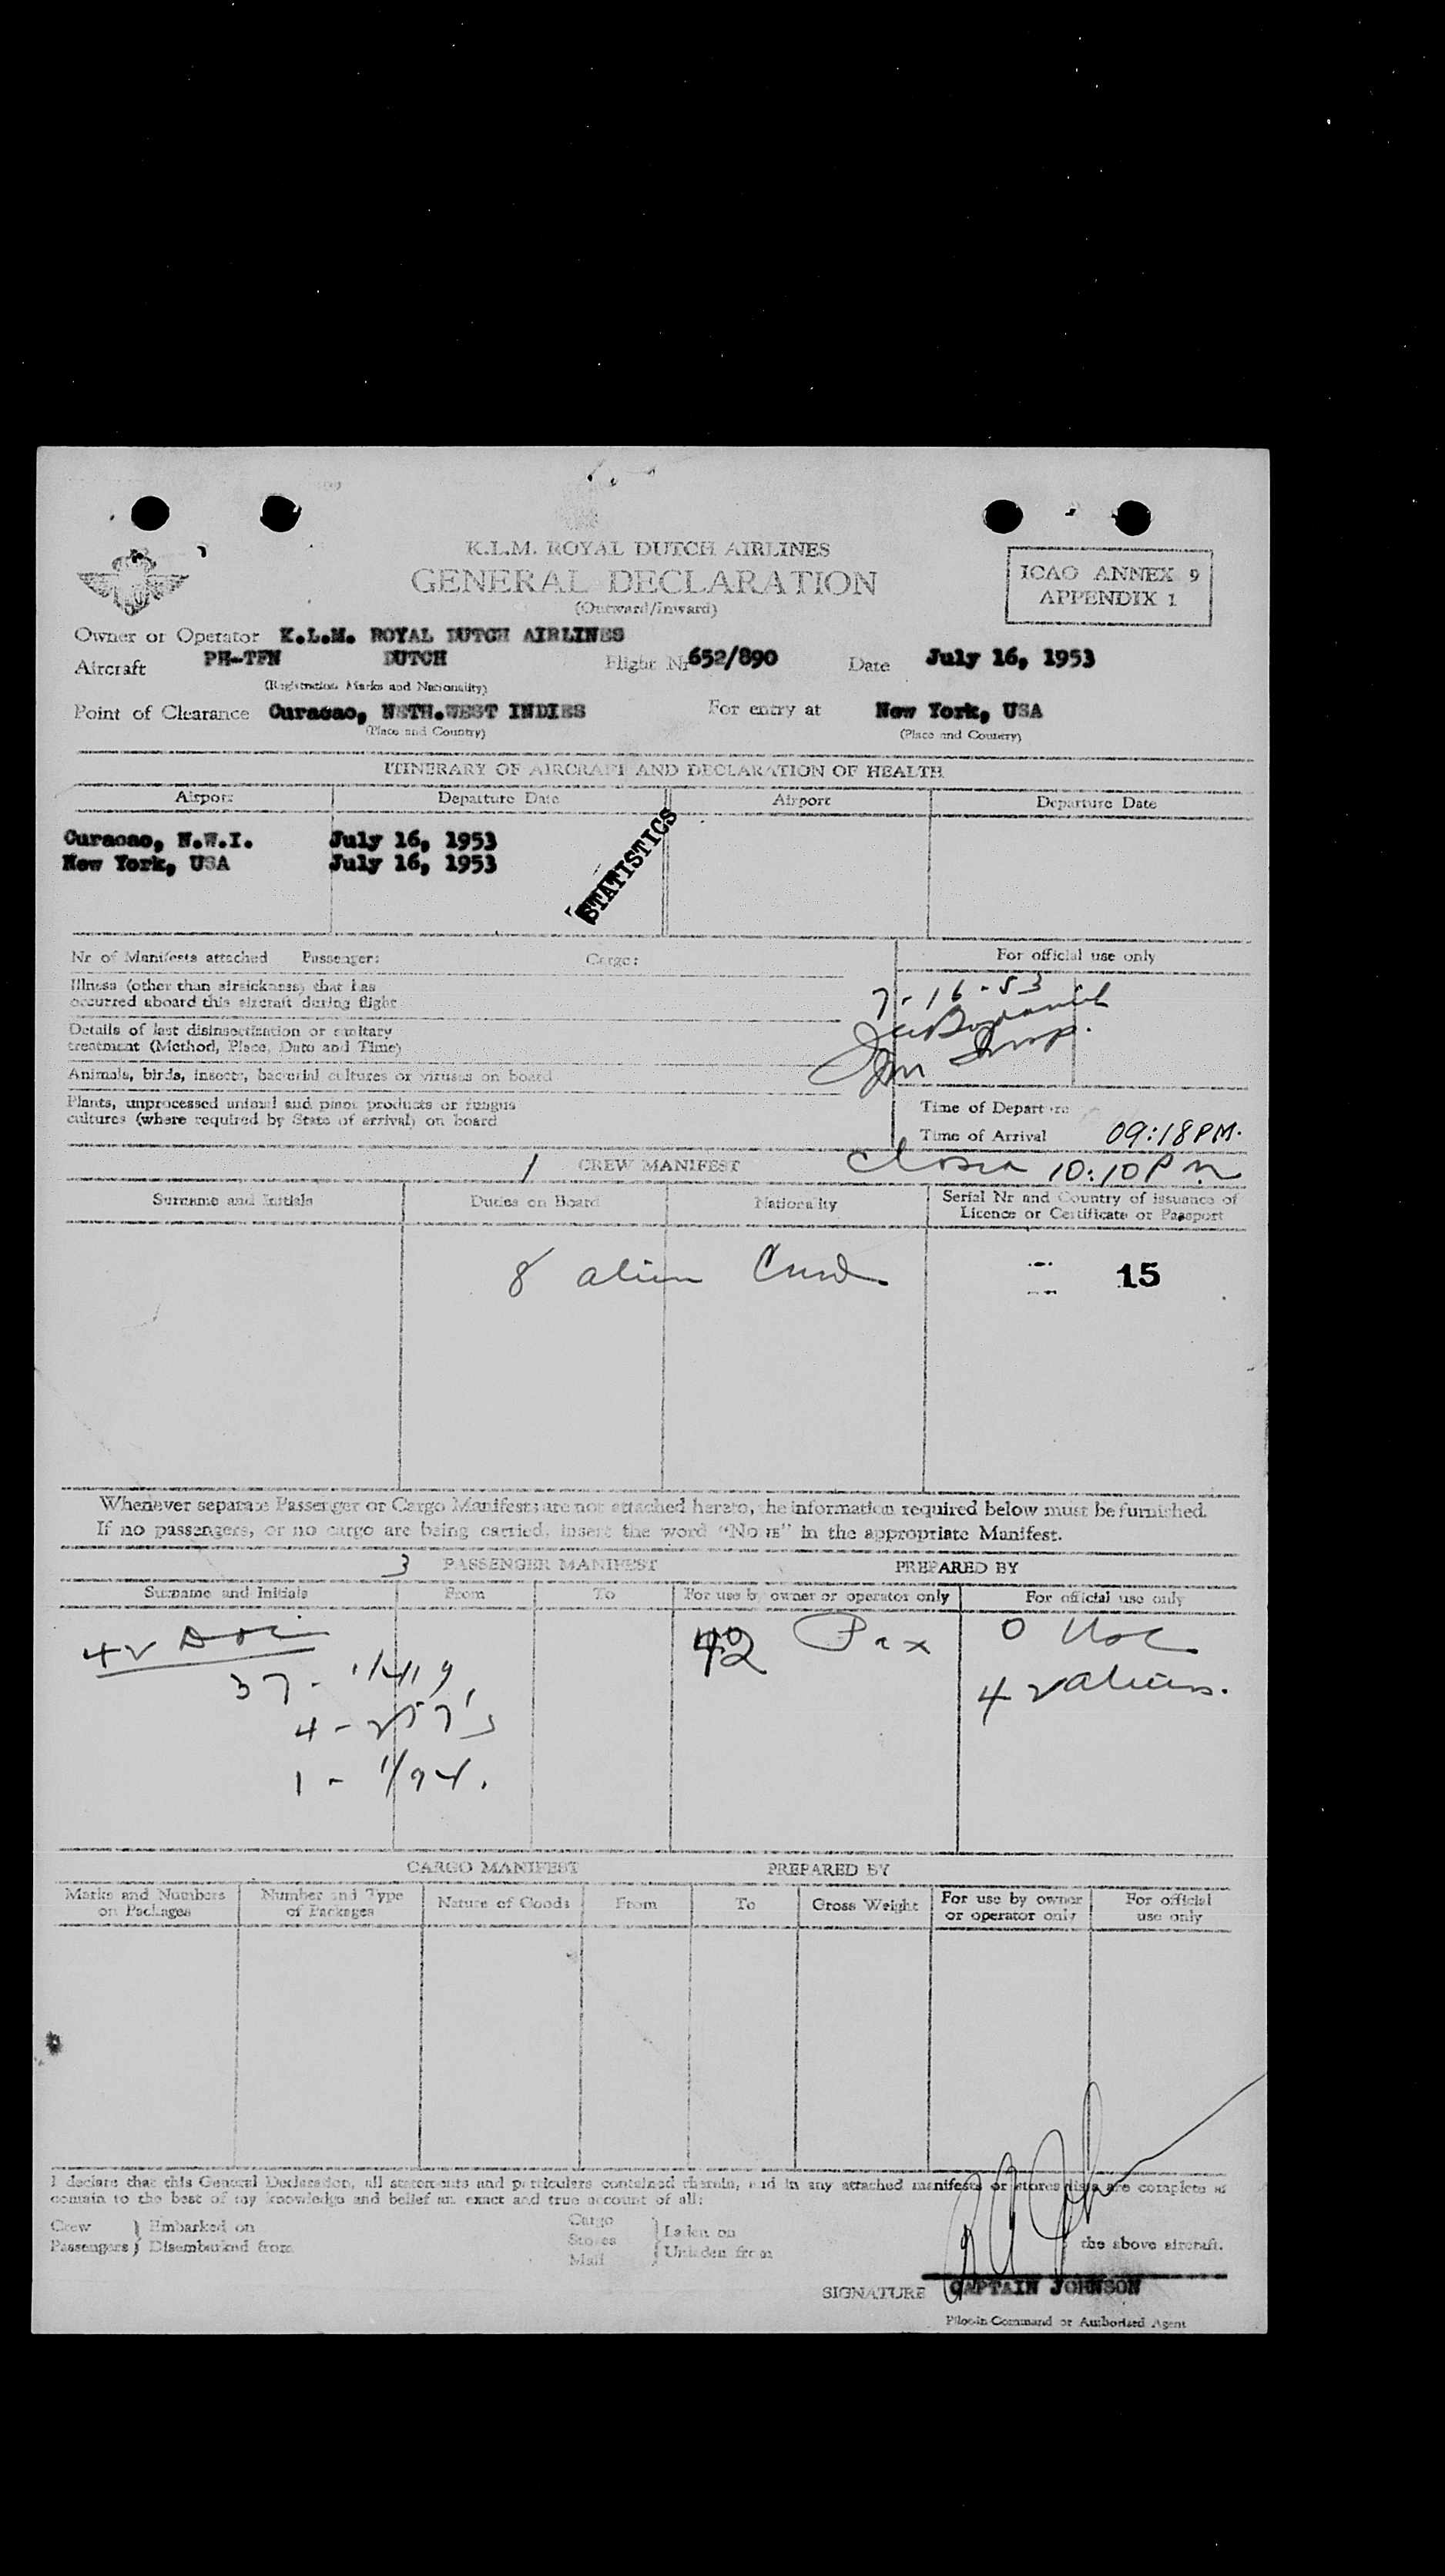 K.L.M. ROYAL DUTCH AIRLINES
GENERAL DECLARATION
(Outward/Inward)
ICAO ANNEX 9
APPENDIX 1
Owner or Operator K.L.M. ROYAL DUTCH AIRLINES
Aircraft PH-TFN DUTCH Flight Nr 652/890 Date July 16, 1953
(Registration Marks and Nationality)
Point of Clearance Curacao, NETH.WEST INDIES For entry at New York, USA
(Place and Country) (Place and Country)
ITINERARY OF AIRCRAFT AND DECLARATION OF HEALTH
Airport Departure Date Airport Departure Date
Curacao, N.W.I. July 16, 1953
New York, USA July 16, 1953
STATISTICS
Nr of Manifests attached Passenger: Cargo: For official use only
Illness (other than airsickness) that has
occurred aboard this aircraft during flight
7-16-53
Details of last disinsectization or sanitary
treatment (Method, Place, Date and Time)
Animals, birds, insects, bacterial cultures or viruses on board
Plants, unprocessed animal and plant products or fungus
cultures (where required by State of arrival) on board
Time of Departure
Time of Arrival 09:18 PM.
1 CREW MANIFEST 10:10 PM
Surname and Initials Duties on Board Nationality Serial Nr and Country of issuance of
Licence or Certificate or Passport
8 alien Crew 15
Whenever separate Passenger or Cargo Manifests are not attached hereto, the information required below must be furnished.
If no passengers, or no cargo are being carried, insert the word "None" in the appropriate Manifest.
3 PASSENGER MANIFEST PREPARED BY
Surname and Initials From To For use by owner or operator only For official use only
42 Pax 0 USC
42 aliens.
37 -
4 - 257's
1 -
CARGO MANIFEST PREPARED BY
Marks and Numbers
on Packages Number and Type
of Packages Nature of Goods From To Gross Weight For use by owner
or operator only For official
use only
I declare that this General Declaration, all statements and particulars contained therein, and in any attached manifests or stores lists are complete and
contain to the best of my knowledge and belief an exact and true account of all:
Crew } Embarked on
Passengers } Disembarked from
Cargo
Stores
Mail
} Laden on
Unladen from
the above aircraft.
SIGNATURE CAPTAIN JOHNSON
Pilot-in-Command or Authorised Agent